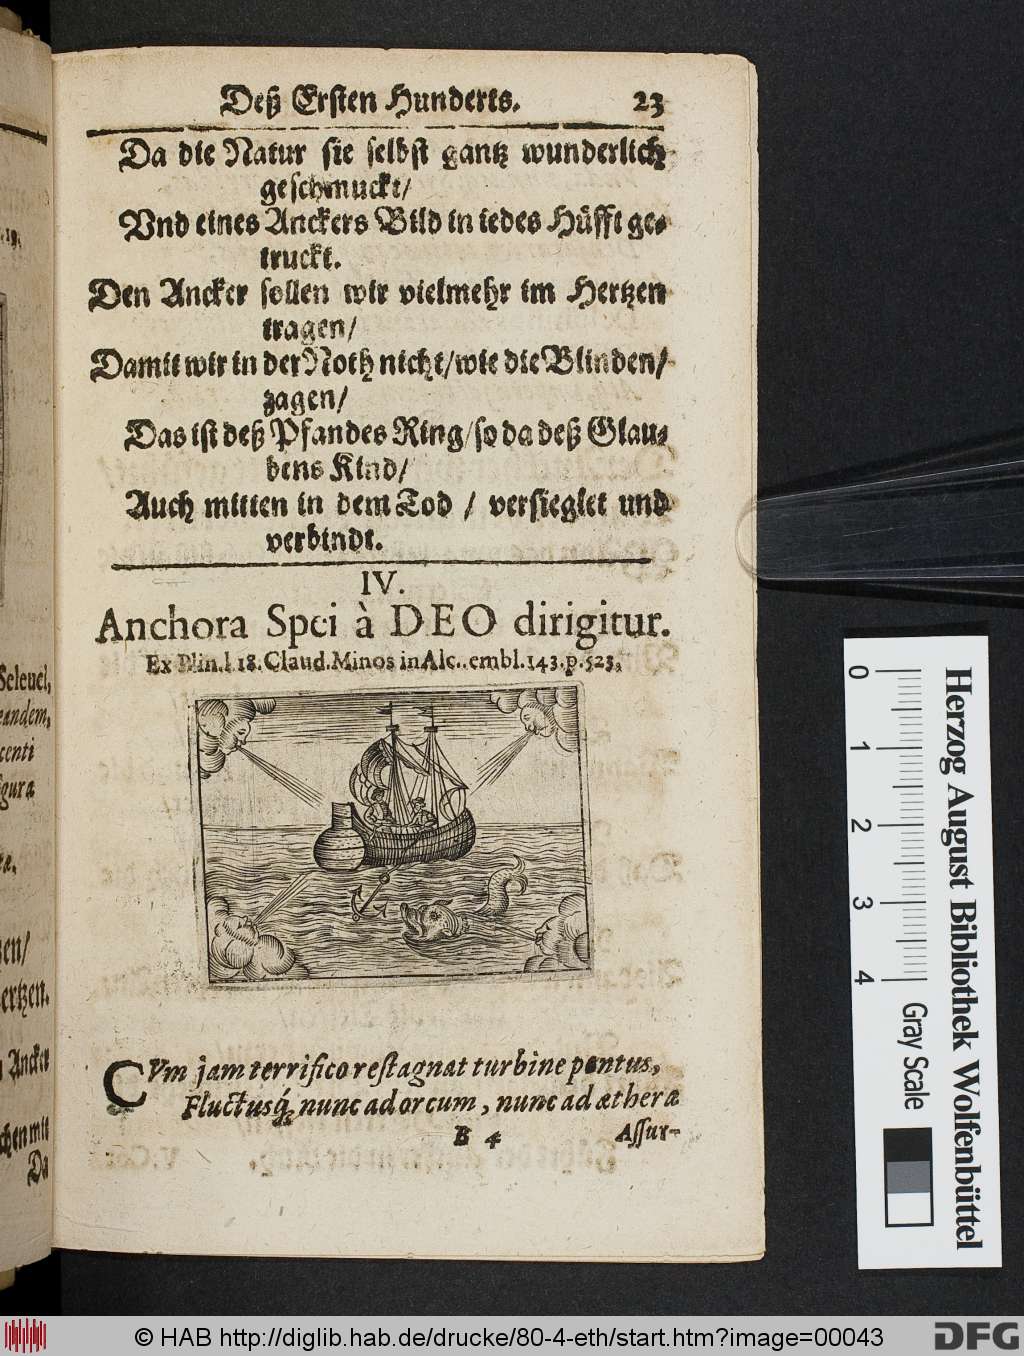 Deß Ersten Hunderts. 23
Da die Natur sie selbst gantz wunderlich
geschmuckt/
Vnd eines Anckers Bild in iedes Hüfft ge-
truckt.
Den Ancker sollen wir vielmehr im Hertzen
tragen/
Damit wir in der Noth nicht/wie die Blinden/
zagen/
Das ist deß Pfandes Ring/so da deß Glau-
bens Kind/
Auch mitten in dem Tod / versieglet und
verbindt.
IV.
Anchora Spei à DEO dirigitur.
Ex Plin.l.18.Claud.Minos in Alc..embl.143.p.523.
CVm jam terrifico restagnat turbine pontus,
Fluctusq́; nunc ad orcum, nunc ad æthera
B 4 Assur-
Seleuci,
eandem,
centi
igura
ertzen.
Ancker
chen mit
Da
0
1
2
3
4
Gray Scale
Herzog August Bibliothek Wolfenbüttel
© HAB http://diglib.hab.de/drucke/80-4-eth/start.htm?image=00043
DFG